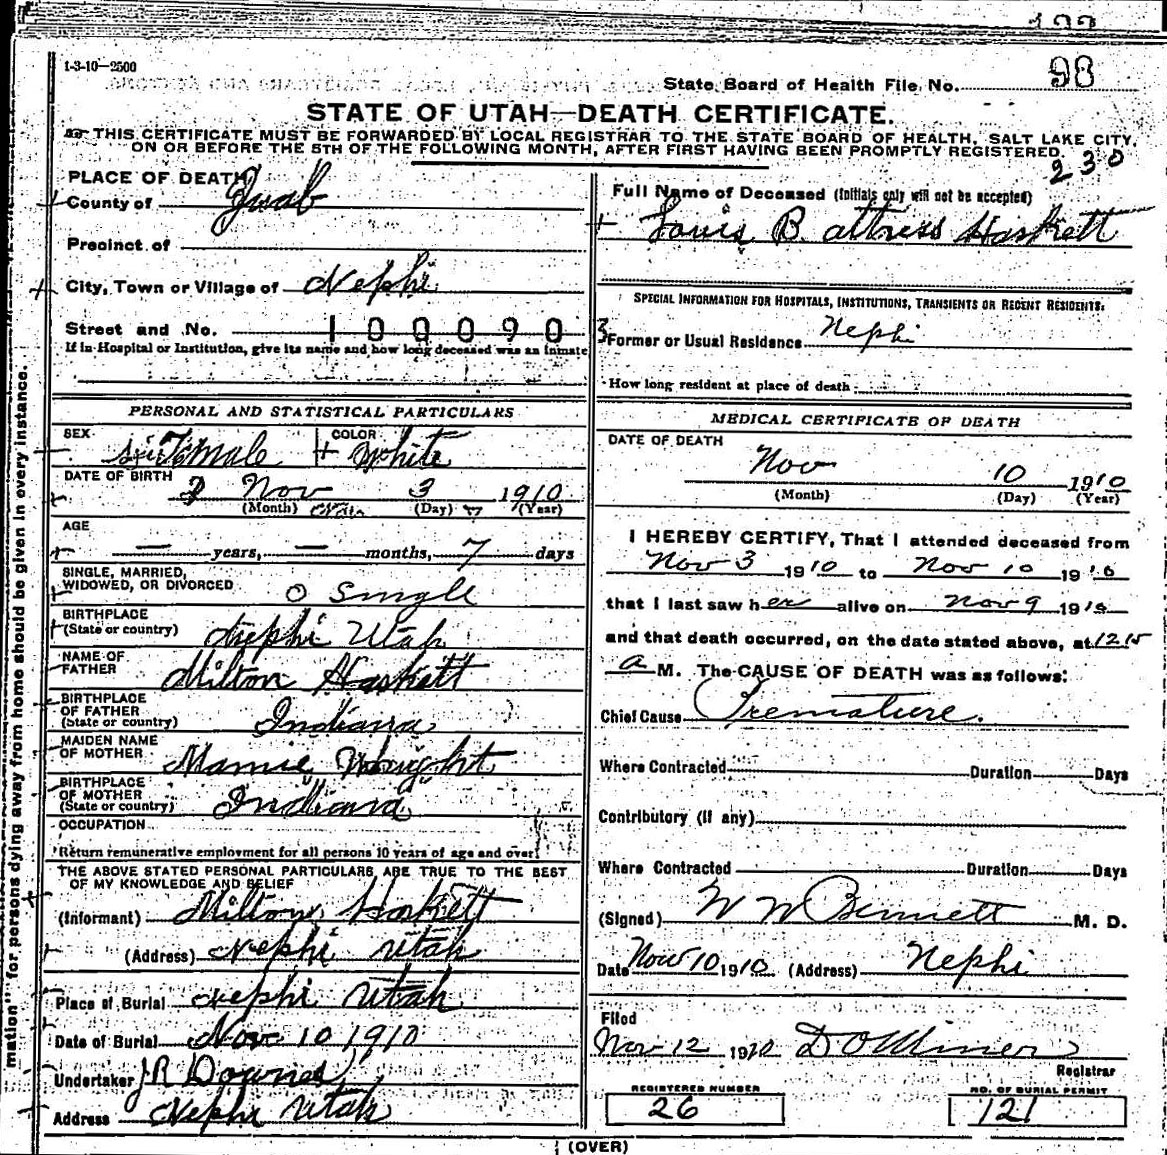 1-3-10—2500
State Board of Health File No. 98
STATE OF UTAH—DEATH CERTIFICATE.
THIS CERTIFICATE MUST BE FORWARDED BY LOCAL REGISTRAR TO THE STATE BOARD OF HEALTH, SALT LAKE CITY,
ON OR BEFORE THE 5TH OF THE FOLLOWING MONTH, AFTER FIRST HAVING BEEN PROMPTLY REGISTERED.
230
PLACE OF DEATH
County of Juab
Precinct of
City, Town or Village of Nephi
Street and No. 100090
If in Hospital or Institution, give its name and how long deceased was an inmate
Full Name of Deceased (Initials only will not be accepted)
Louis B. attress Haskett
SPECIAL INFORMATION FOR HOSPITALS, INSTITUTIONS, TRANSIENTS OR RECENT RESIDENTS.
3
Former or Usual Residence Nephi
How long resident at place of death
mation" for persons dying away from home should be given in every instance.
PERSONAL AND STATISTICAL PARTICULARS
SEX Female COLOR White
DATE OF BIRTH Nov 3 1910
(Month) (Day) (Year)
AGE
— years, — months, 7 days
SINGLE, MARRIED,
WIDOWED, OR DIVORCED O Single
BIRTHPLACE
(State or country) Nephi Utah
NAME OF
FATHER Milton Haskett
BIRTHPLACE
OF FATHER
(State or country) Indiana
MAIDEN NAME
OF MOTHER Mamie Wright
BIRTHPLACE
OF MOTHER
(State or country) Indiana
OCCUPATION
Return remunerative employment for all persons 10 years of age and over
THE ABOVE STATED PERSONAL PARTICULARS ARE TRUE TO THE BEST
OF MY KNOWLEDGE AND BELIEF
(Informant) Milton Haskett
(Address) Nephi Utah
Place of Burial Nephi Utah
Date of Burial Nov 10 1910
Undertaker J R Downes
Address Nephi Utah
MEDICAL CERTIFICATE OF DEATH
DATE OF DEATH
Nov 10 1910
(Month) (Day) (Year)
I HEREBY CERTIFY, That I attended deceased from
Nov 3 1910 to Nov 10 1910
that I last saw her alive on Nov 9 1910
and that death occurred, on the date stated above, at 12 15
a M. The CAUSE OF DEATH was as follows:
Chief Cause Premature.
Where Contracted Duration Days
Contributory (if any)
Where Contracted Duration Days
(Signed) W W Bennett M. D.
Date Nov 10 1910 (Address) Nephi
Filed
Nov 12 1910 D O Miner
Registrar
REGISTERED NUMBER
26
NO. OF BURIAL PERMIT
121
(OVER)